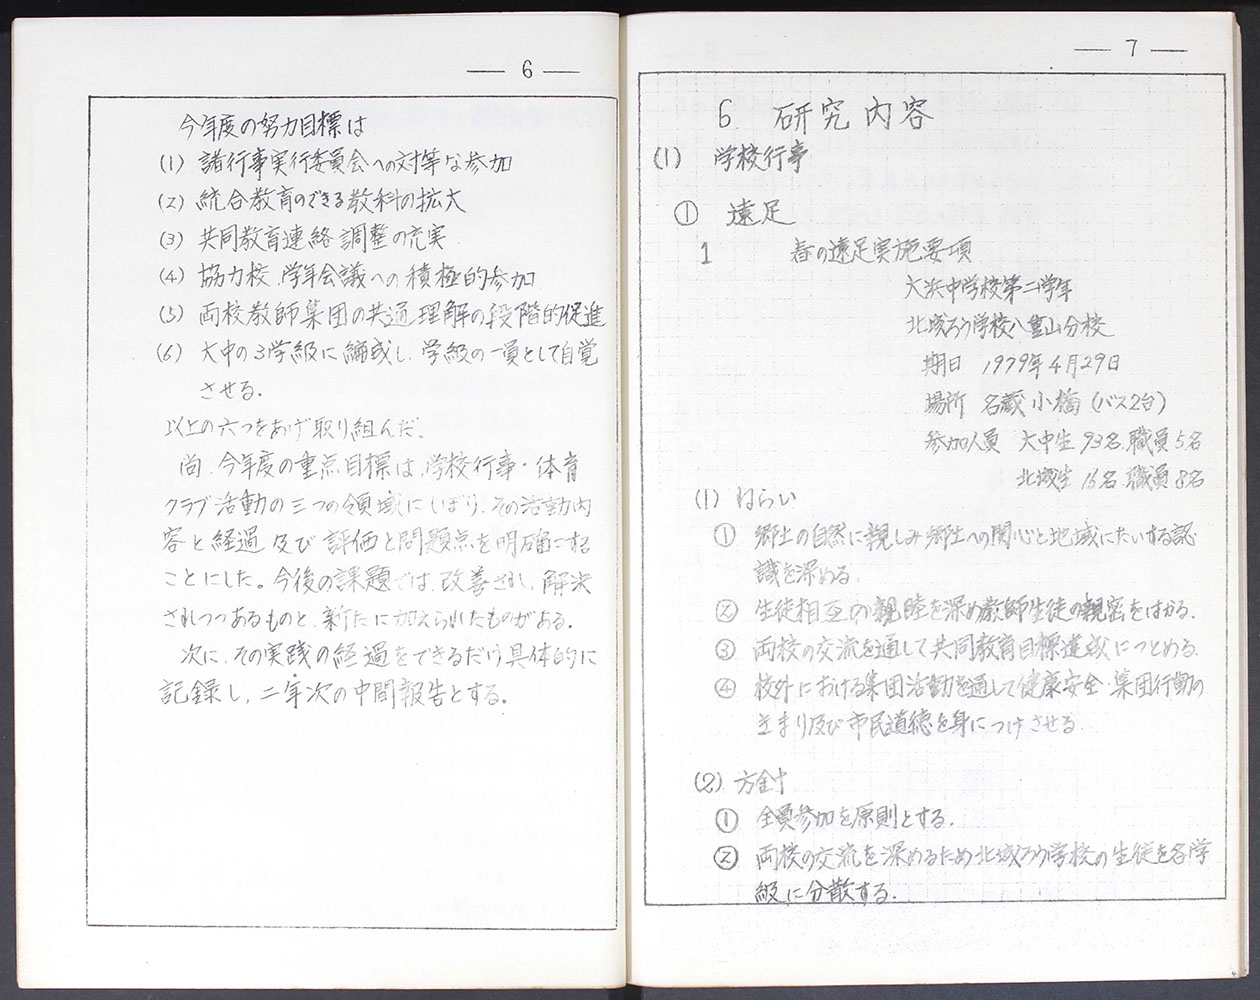 — 6 —
今年度の努力目標は
(1) 諸行事実行委員会への対等な参加
(2) 統合教育のできる教科の拡大
(3) 共同教育連絡調整の充実
(4) 協力校、学年会議への積極的参加
(5) 両校教師集団の共通理解の段階的促進
(6) 大中の3学級に編成し、学級の一員として自覚
させる.
以上の六つをあげ取り組んだ。
尚、今年度の重点目標は、学校行事・体育
クラブ活動の三つの領域にしぼり、その活動内
容と経過及び評価と問題点を明確にする
ことにした。今後の課題では、改善され、解決
されつつあるものと、新たに加えられたものがある.
次に、その実践の経過をできるだけ具体的に
記録し、二年次の中間報告とする。
— 7 —
6 研究内容
(1) 学校行事
① 遠足
1 春の遠足実施要項
大浜中学校第二学年
北城ろう学校八重山分校
期日 1979年4月29日
場所 名蔵小橋 (バス2台)
参加人員 大中生 93名、職員5名
北城生 16名、職員8名
(1) ねらい
① 郷土の自然に親しみ郷土への関心と地域にたいする認
識を深める.
② 生徒相互の親睦を深め教師生徒の親密をはかる.
③ 両校の交流を通して共同教育目標達成につとめる.
④ 校外における集団活動を通して健康安全、集団行動の
きまり及び市民道徳を身につけさせる.
(2) 方針
① 全員参加を原則とする.
② 両校の交流を深めるため北城ろう学校の生徒を各学
級に分散する.